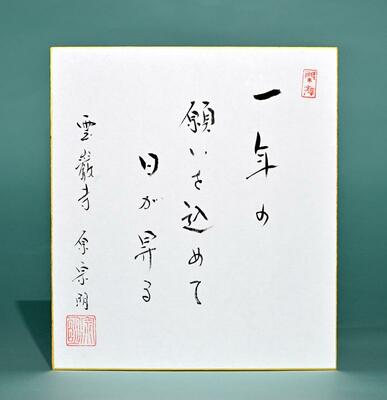 一年の
願いを込めて
日が昇る
雲巌寺 原宗明